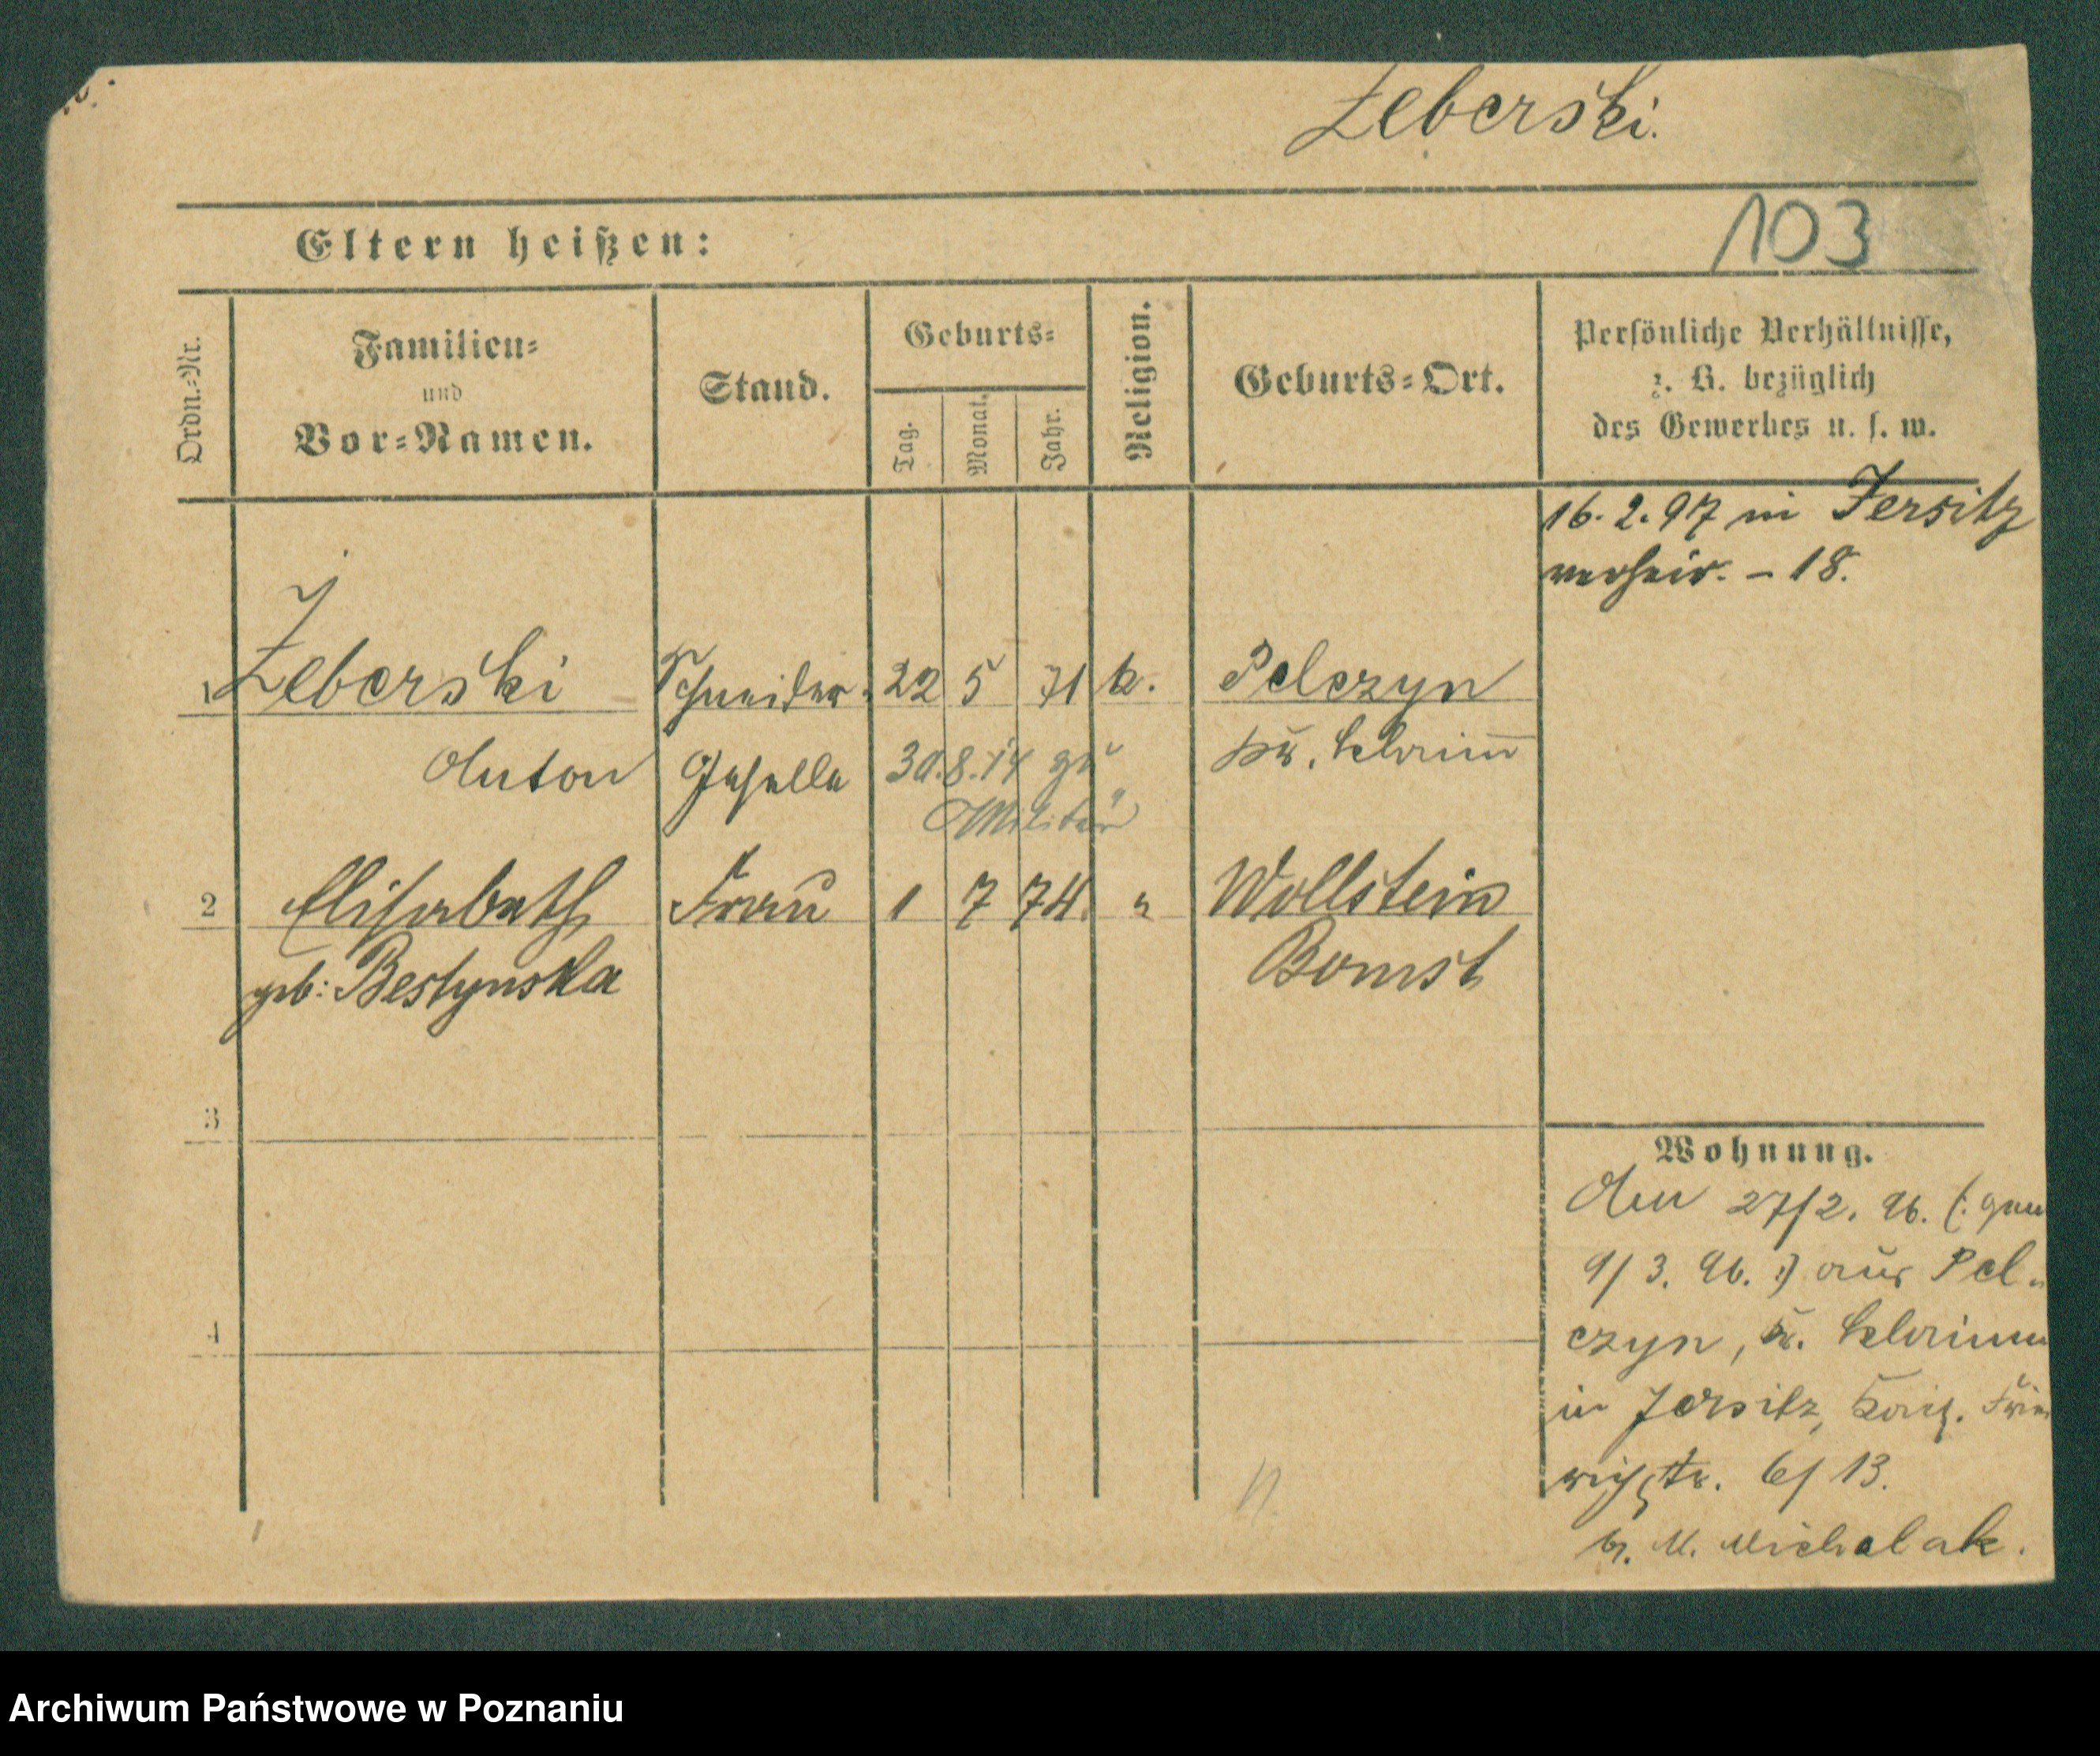 Żeberski.
103
Eltern heißen:
Ordn.=Nr.
Familien=
und
Vor=Namen.
Stand.
Geburts=
Tag.
Monat.
Jahr.
Religion.
Geburts=Ort.
Persönliche Verhältnisse,
z. B. bezüglich
des Gewerbes u. s. w.
16. 2. 97 in Jersitz
verheir. – 18.
1 Żeberski Schneider 22 5 71 k. Pelczyn
Anton Geselle 30. 8. 14 zu Schrimm
Militär
2 Elisabeth Frau 1 7 74. " Wollstein
geb: Bestynska Bomst
3
4
Wohnung.
Am 27/2. 96. (: gem
9/3. 96. :) aus Pel=
czyn, Kr. Schrimm
in Jersitz, Kais. Frie
richstr. 6/13.
b. M. Michalak.
Archiwum Państwowe w Poznaniu